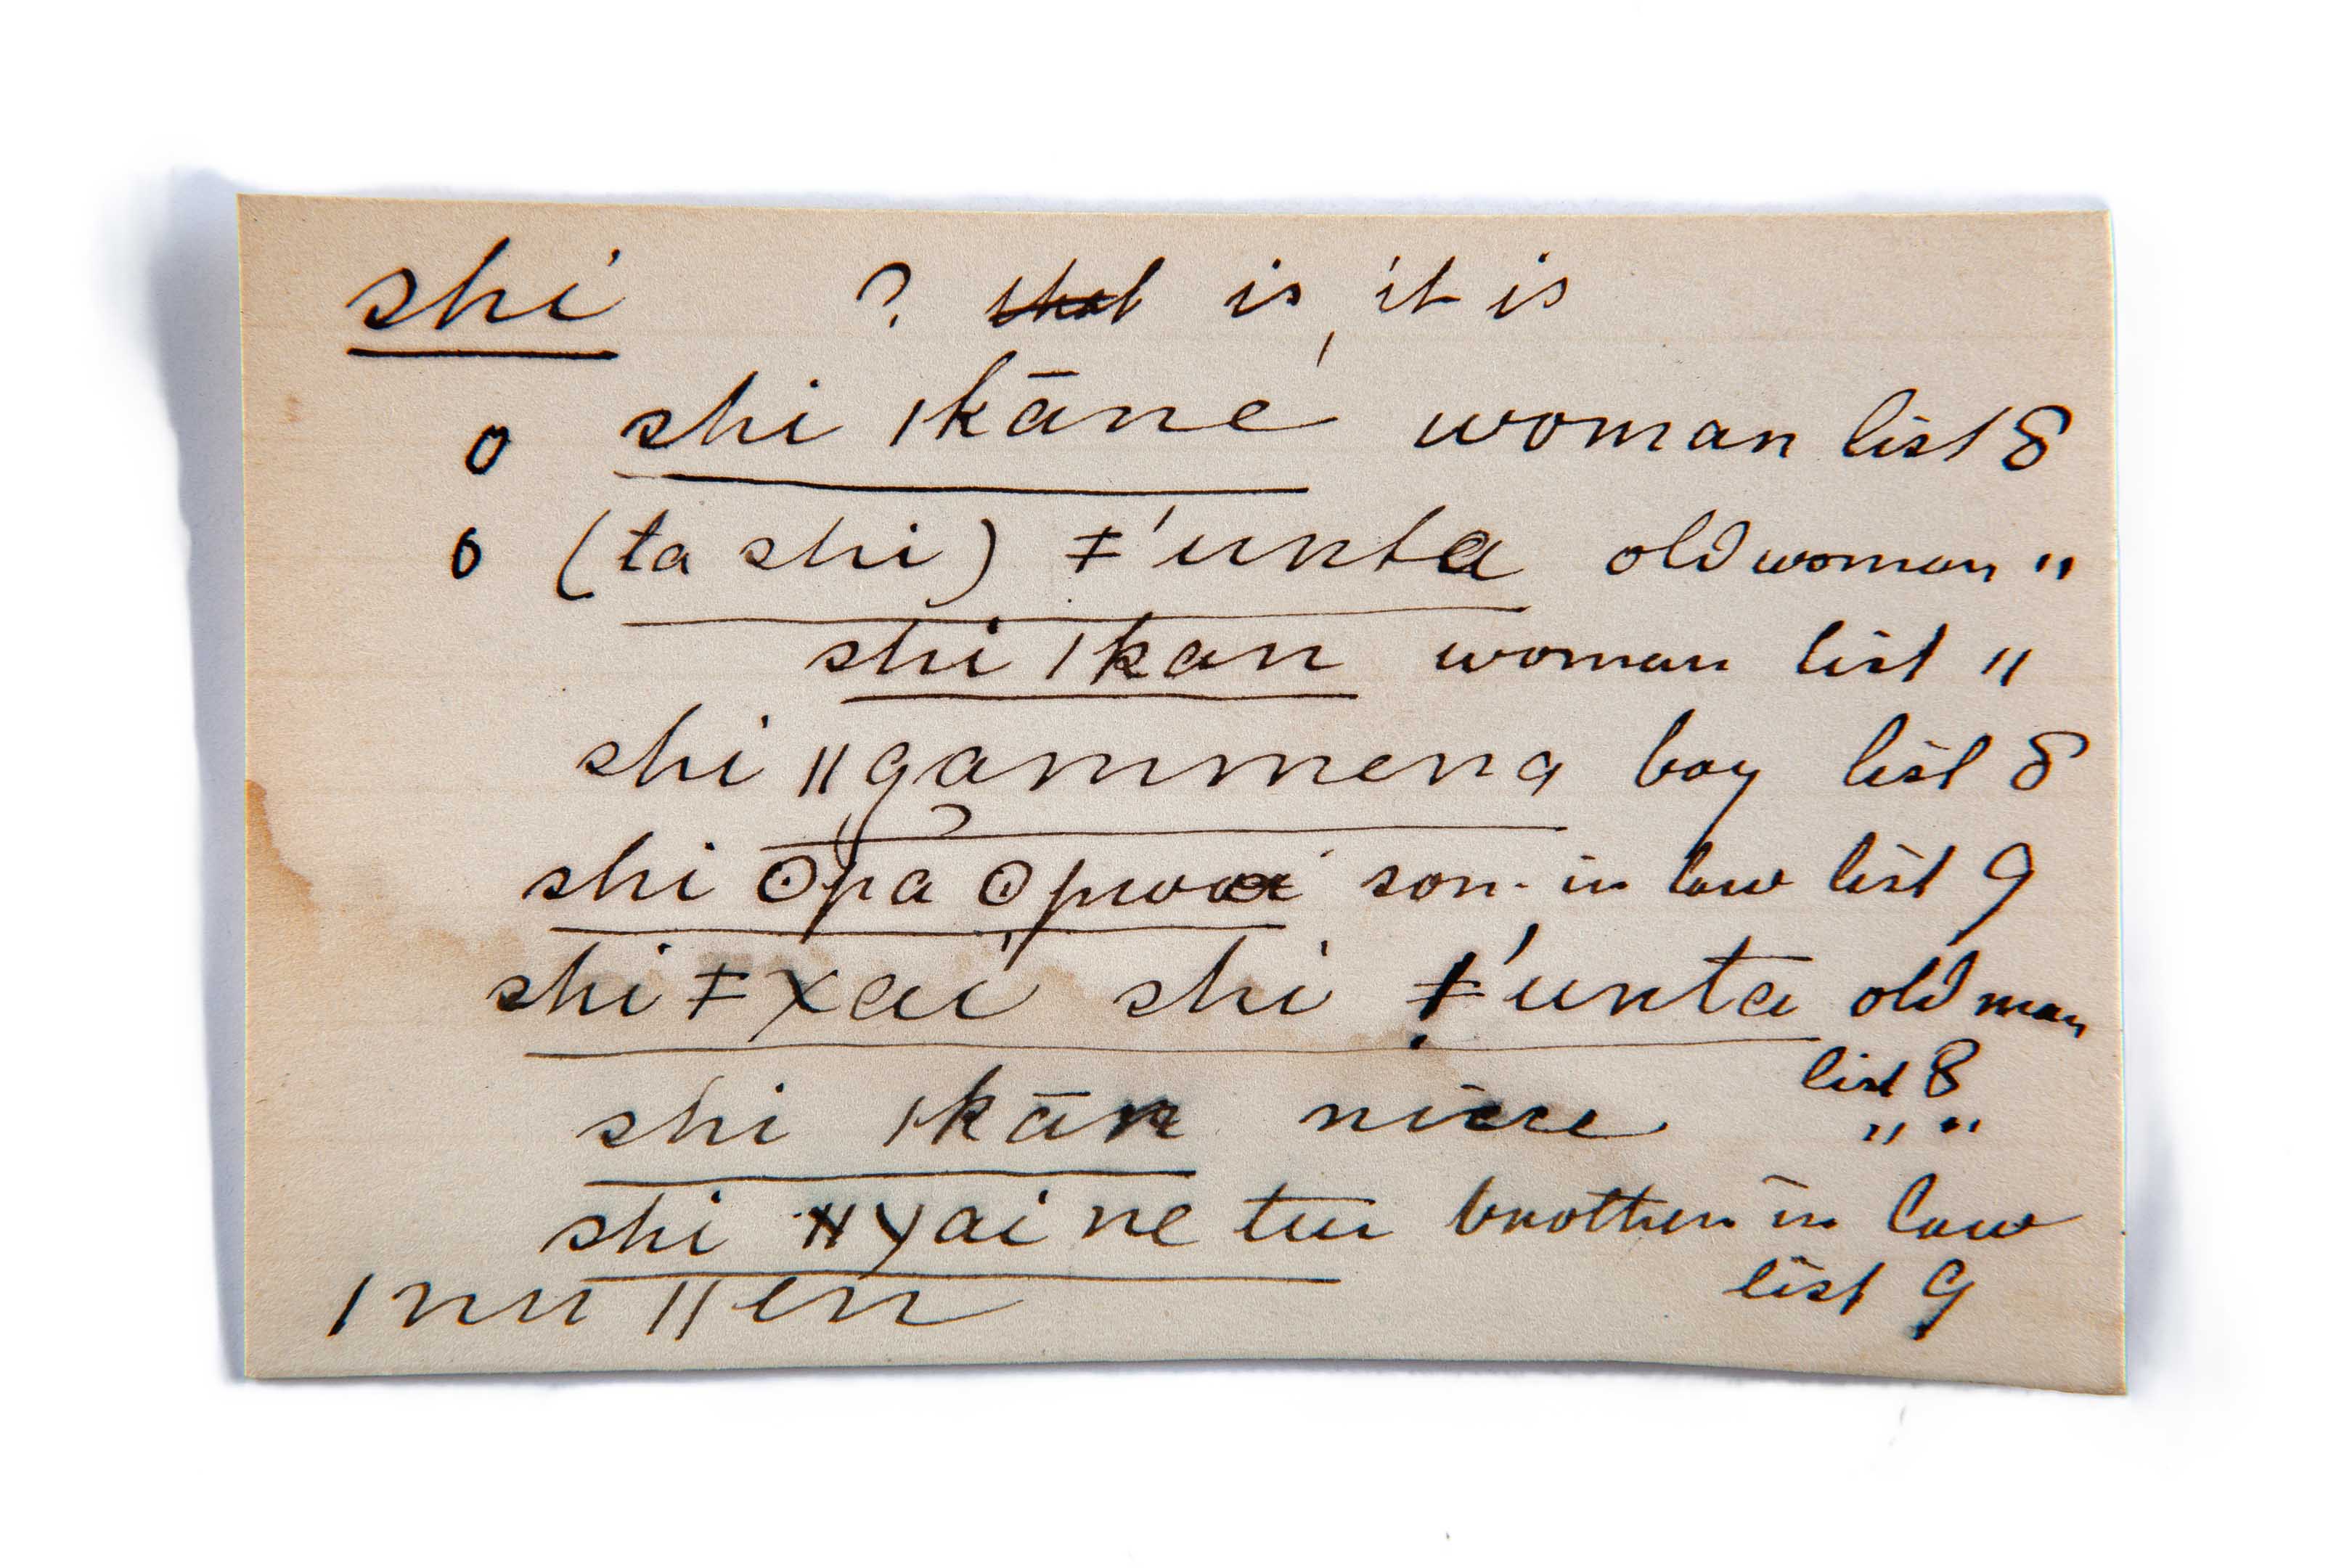 shi ? that is, it is
o shi ǀkāne woman list 8
o (ta shi) ǂ'unta old woman "
shi ǀkan woman list "
shi ǁgammena boy list 8
shi ʘpa ʘpwai son-in law list 9
shi ǂxai shi ǂ'unta old man
list 8
shi ǀkān niece " "
shi ǁxai ne tu brother in law
list 9
ǀnu ǁen